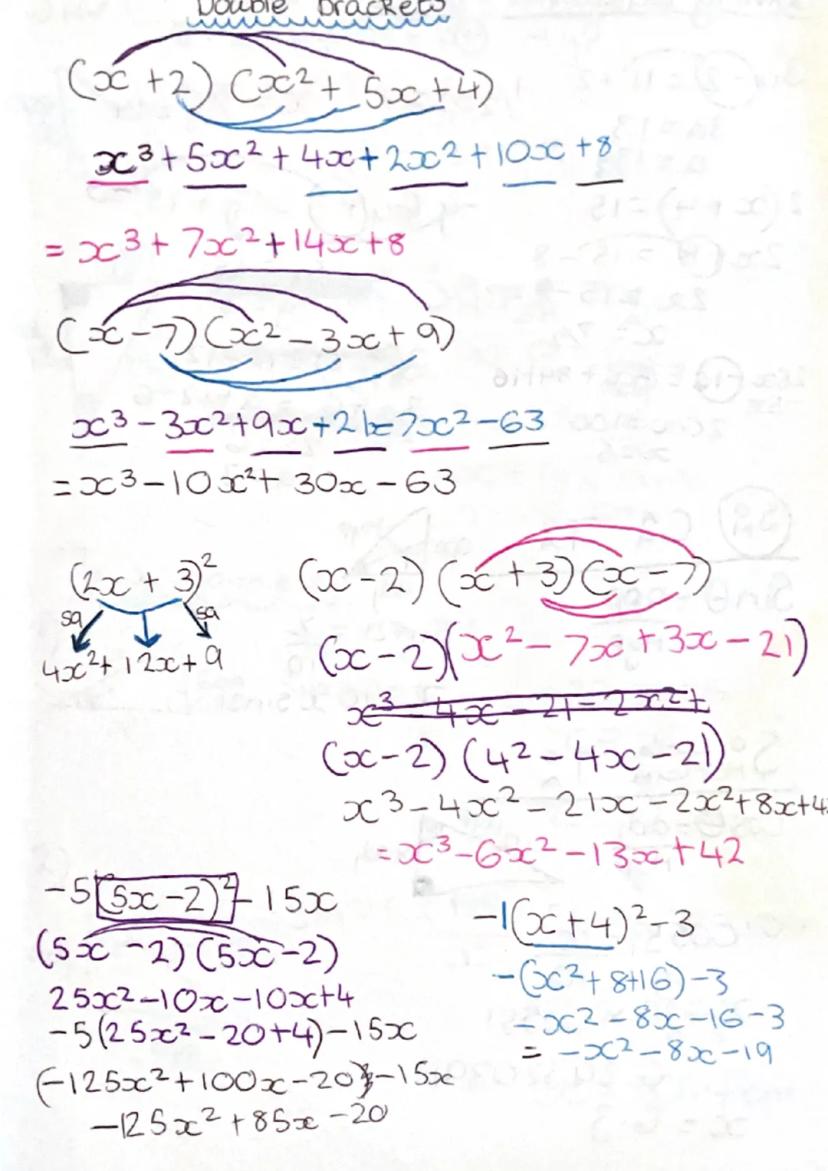 Double brackets
(x + 2) (x² + 5x + 4)
x³ + 5x² + 4x + 2x² + 10x + 8
= x³ + 7x² + 14x + 8
(x - 7) (x² - 3x + 9)
x³ - 3x² + 9x + 21x - 7x² - 63
= x³ - 10x² + 30x - 63
(2x + 3)²
sq sq
4x² + 12x + 9
(x - 2) (x + 3) (x - 7)
(x - 2) (x² - 7x + 3x - 21)
x³ - 4x - 21 - 2x² +
(x - 2) (4² - 4x - 21)
x³ - 4x² - 21x - 2x² + 8x + 4
= x³ - 6x² - 13x + 42
-5 (5x - 2)² - 15x
(5x - 2) (5x - 2)
25x² - 10x - 10x + 4
-5 (25x² - 20 + 4) - 15x
(-125x² + 100x - 20) - 15x
-125x² + 85x - 20
-1(x + 4)² - 3
-(x² + 8 + 16) - 3
-x² - 8x - 16 - 3
= -x² - 8x - 19